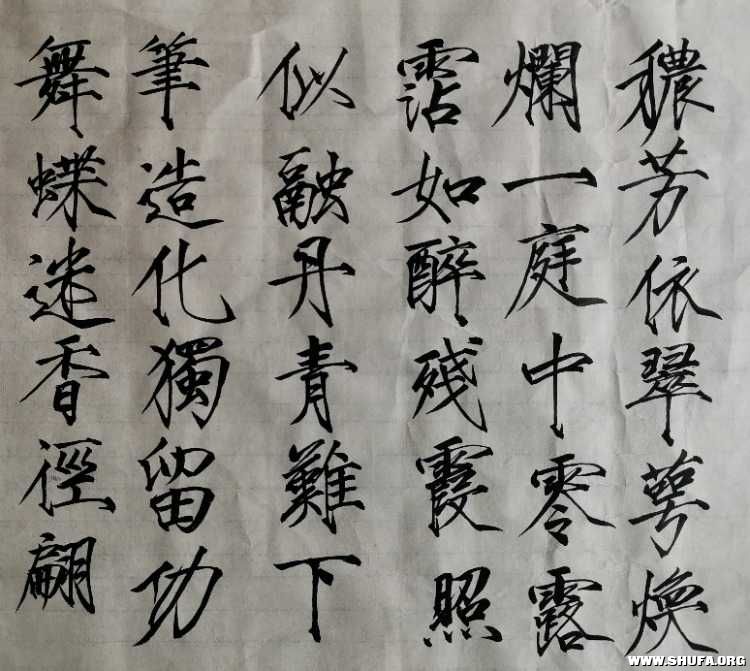 穠芳依翠萼煥
爛一庭中零露
霑如醉殘霞照
似融丹青難下
筆造化獨留功
舞蝶迷香徑翩
WWW.SHUFA.ORG